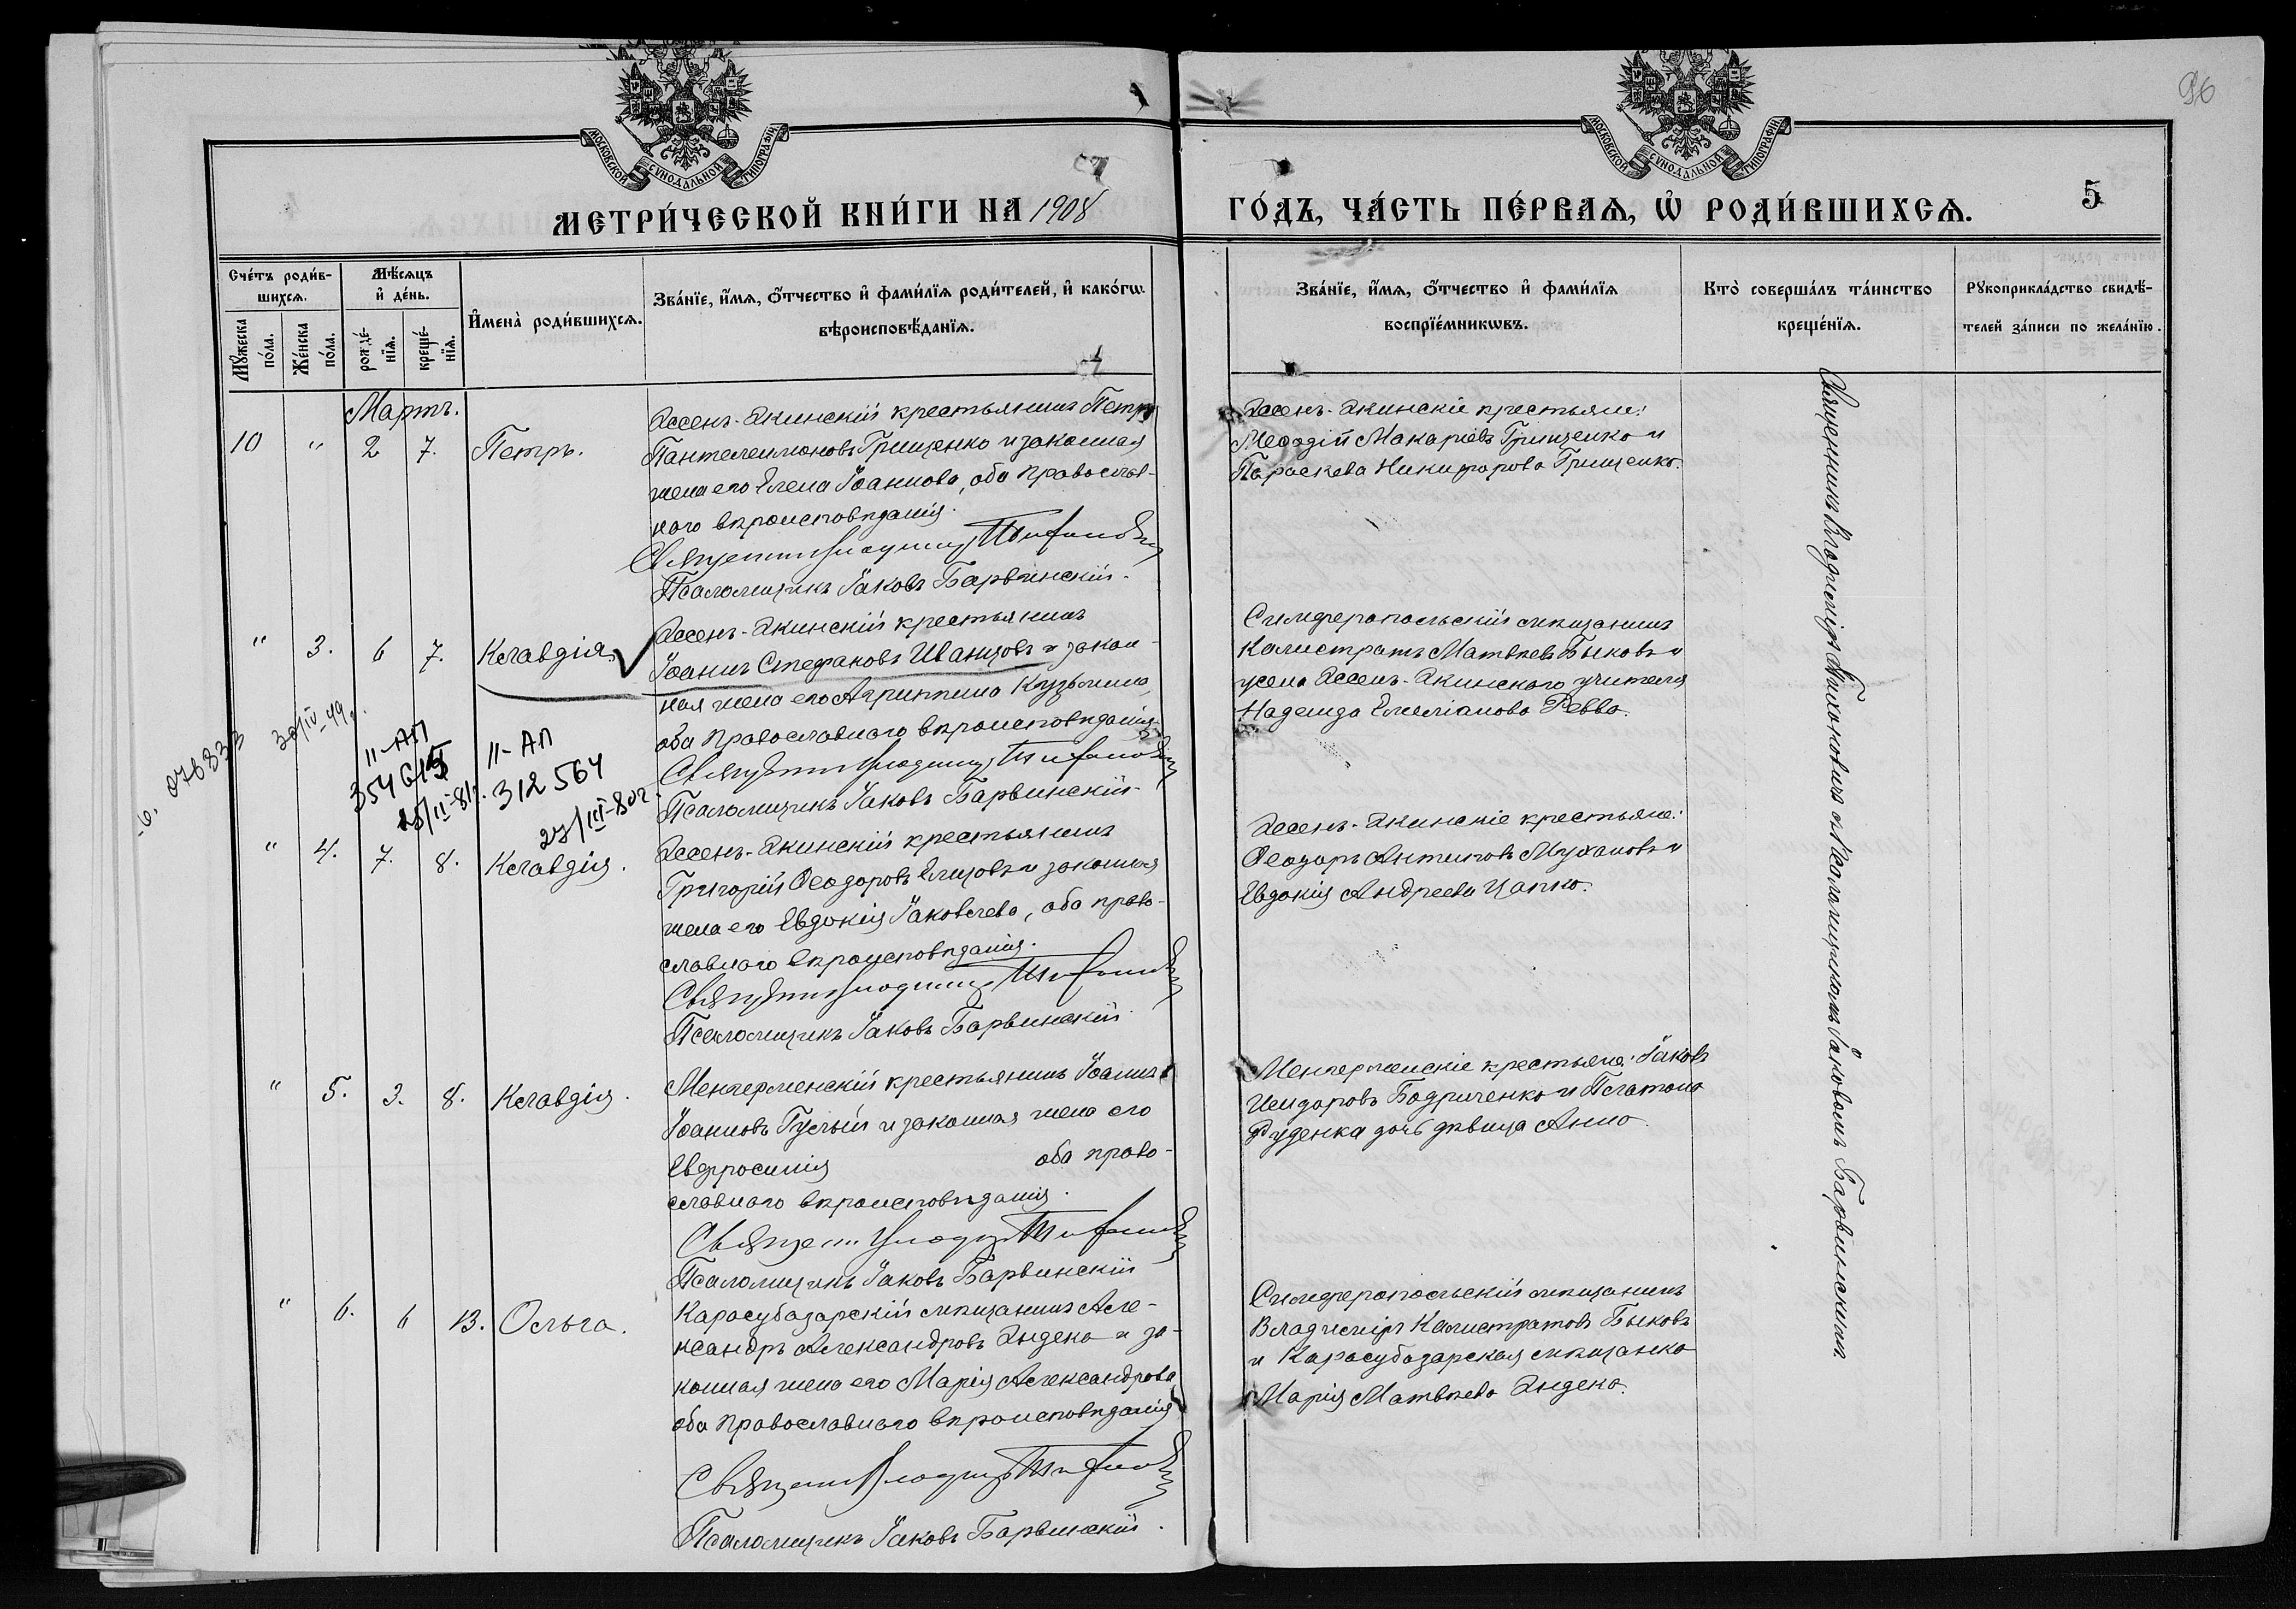 96
МОСКОВСКОЙ СѴНОДАЛЬНОЙ ТИПОГРАФІИ
МОСКОВСКОЙ СѴНОДАЛЬНОЙ ТИПОГРАФІИ
МЕТРИ́ЧЕСКОЙ КНИ́ГИ НА 1908
ГО́ДЪ, ЧА́СТЬ ПЕ́РВАѦ, Ѡ҆ РОДИ́ВШИХСѦ.
5
Сче́тъ роди́в-
шихсѧ.
Мꙋ́жеска по́ла.
Же́нска по́ла.
Мѣ́сѧцъ
и҆ де́нь.
рожде́-
нїѧ.
креще́-
нїѧ.
И҆мена̀ роди́вшихсѧ.
Зва́нїе, и҆́мѧ, ѻ҆́тчество и҆ фами́лїѧ роди́телей, и҆ како́гѡ
вѣроисповѣ́данїѧ.
Зва́нїе, и҆́мѧ, ѻ҆́тчество и҆ фами́лїѧ
воспрїе́мникѡвъ.
Кто̀ соверша́лъ та́инство
креще́нїѧ.
Рꙋкоприкла́дство свидѣ́-
телей за́писи по жела́нїю.
Мартъ.
10 " 2 7. Петръ.
Ассенъ-Акинскій крестьянинъ Петръ
Пантелеимоновъ Грищенко и законная
жена его Елена Іоаннова, оба православ-
наго вѣроисповѣданія.
Священникъ Владиміръ
Псаломщикъ Іаковъ Барвинскій.
Ассенъ-Акинскіе крестьяне:
Меѳодій Макаріевъ Грищенко и
Параскева Никифорова Грищенко.
" 3. 6 7. Клавдія.
Ассенъ-Акинскій крестьянинъ
Іоаннъ Стефановъ Иванцовъ и закон-
ная жена его Агриппина Кузьмина,
оба православнаго вѣроисповѣданія.
Священникъ Владиміръ
Псаломщикъ Іаковъ Барвинскій.
Симферопольскій мѣщанинъ
Калистратъ Матвѣевъ Быковъ и
жена Ассенъ-Акинскаго учителя
Надежда Емеліанова Ревва.
076833
30/IV-49 г.
II-АП
354615
25/II-81г.
II-АП
312564
27/III-80г.
" 4. 7. 8. Клавдія.
Ассенъ-Акинскій крестьянинъ
Григорій Ѳеодоровъ Елизовъ и законная
жена его Евдокія Іаковлева, оба право-
славнаго вѣроисповѣданія.
Священникъ Владиміръ
Псаломщикъ Іаковъ Барвинскій.
Ассенъ-Акинскіе крестьяне:
Ѳеодоръ Антиповъ Мухановъ и
Евдокія Андреева Цапко.
" 5. 3. 8. Клавдія.
Менлерменскій крестьянинъ Іоаннъ
Іоанновъ Гуслый и законная жена его
Евфросинія оба право-
славнаго вѣроисповѣданія.
Священ. Владиміръ
Псаломщикъ Іаковъ Барвинскій
Менлерменскіе крестьяне: Іаковъ
Исидоровъ Бодриченко и Платона
Руденка дочь дѣвица Анна.
" 6. 6 13. Ольга.
Карасубазарскій мѣщанинъ Але-
ксандръ Александровъ Яндено и за-
конная жена его Марія Александрова
оба православнаго вѣроисповѣданія
Священникъ Владиміръ
Псаломщикъ Іаковъ Барвинскій.
Симферопольскій мѣщанинъ
Владиміръ Калистратовъ Быковъ
и Карасубазарская мѣщанка
Марія Матвѣева Яндено.
Священникъ Владиміръ съ псаломщикомъ Іаковомъ Барвинскимъ